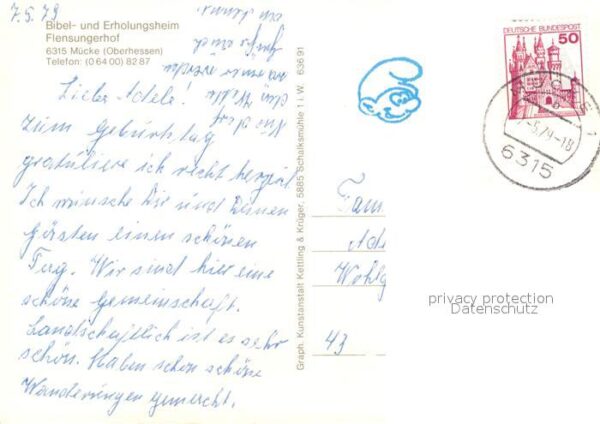 7.5.79
Bibel- und Erholungsheim
Flensungerhof
6315 Mücke (Oberhessen)
Telefon: (0 64 00) 82 87
Liebe Adele!
Zum Geburtstag
gratuliere ich recht herzlich
Ich wünsche dir und Deinen
Gästen einen schönen
Tag. Wir sind hier eine
schöne Gemeinschaft.
Landschaftlich ist es sehr
schön. Haben schon schöne
Wanderungen gemacht.
Graph. Kunstanstalt Kettling & Krüger, 5885 Schalksmühle 1 i. W. 636 91
DEUTSCHE BUNDESPOST
50
MÜCKE 1
-5.79-18
6315
Fam
Ade
Wohlg
43
privacy protection
Datenschutz